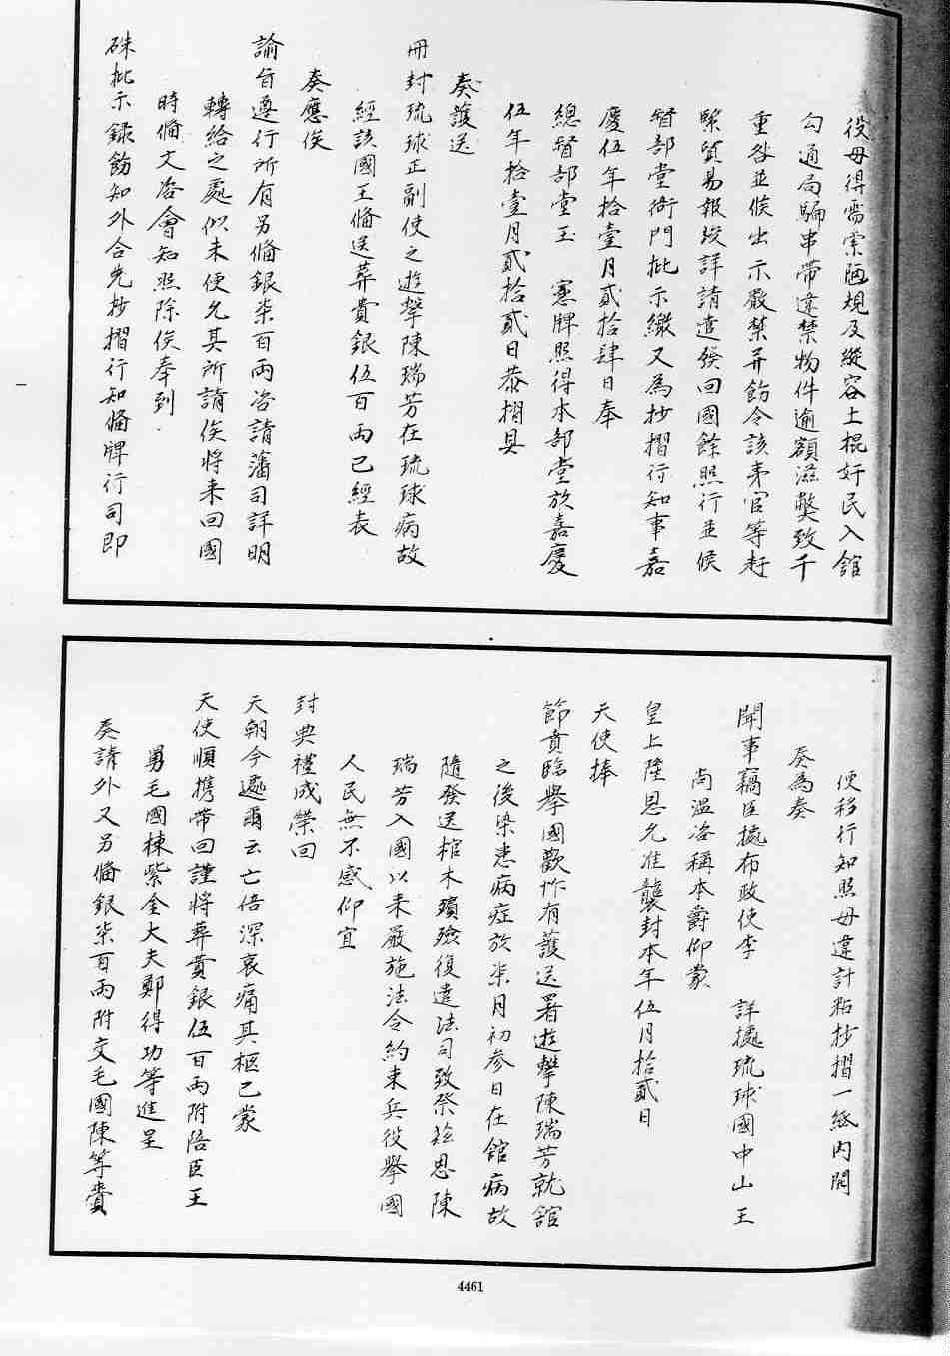 役毋得需索陋規及縱容土棍奸民入館
勾通局騙串帶違禁物件逾額滋獘致干
重咎並候出示嚴禁并飭令該弁官等赶
緊貿易報竣詳請遣發回國餘照行並候
督部堂衙門批示繳又為抄摺行知事嘉
慶伍年拾壹月貳拾肆日奉
總督部堂玉　憲牌照得本部堂於嘉慶
伍年拾壹月貳拾貳日恭摺具
奏護送
冊封琉球正副使之遊擊陳瑞芳在琉球病故
經該國王偹送葬費銀伍百兩已經表
奏應俟
諭旨遵行所有另偹銀柒百兩咨請藩司詳明
轉給之處似未便允其所請俟將来回國
時偹文咨會知照除俟奉到
硃批示録飭知外合先抄摺行知偹牌行司即
便移行知照毋違計粘抄摺一紙内開
奏為奏
聞事竊臣㨿布政使李　詳㨿琉球國中山王
尚温咨稱本爵仰蒙
皇上隆恩允准襲封本年伍月拾貳日
天使捧
節賁臨舉國歡忭有護送署遊擊陳瑞芳就舘
之後染患病症於柒月初叁日在舘病故
隨發送棺木殯殮復遣法司致祭茲思陳
瑞芳入國以来嚴施法令約束兵役舉國
人民無不感仰宜
封典禮成榮回
天朝今遽爾云亡倍深哀痛其柩已蒙
天使順携帶回謹將葬費銀伍百兩附陪臣王
舅毛國棟紫金大夫鄭得功等進呈
奏請外又另偹銀柒百兩附交毛國陳等賫
4461